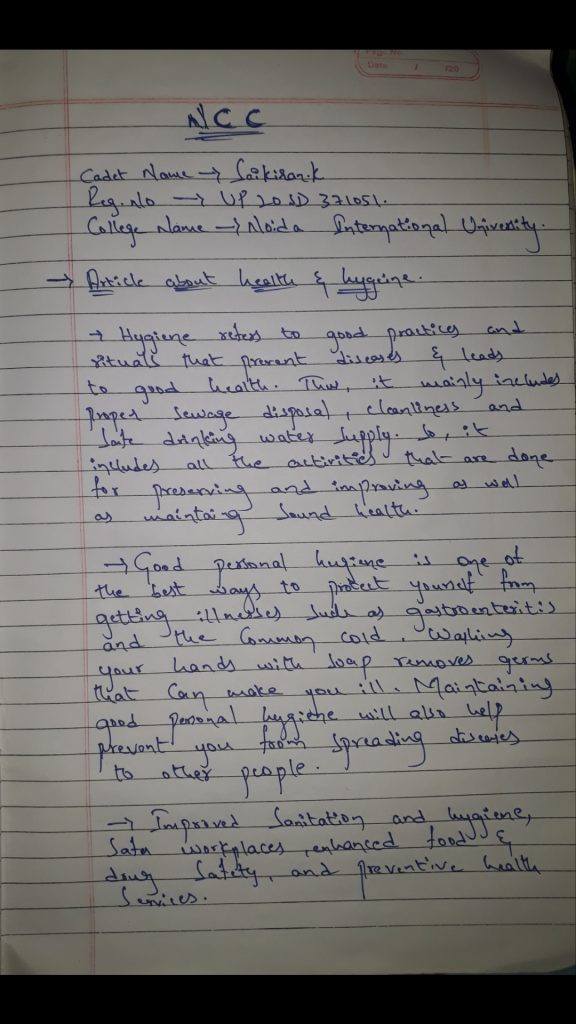 Pag. No
Date / /20
NCC
Cadet Name → Saikiran.k
Reg. No → UP20SD371051.
College Name → Noida International University.
→ Article about health & hygeine.
→ Hygiene refers to good practices and
rituals that prevent diseases & leads
to good health. Thus, it mainly includes
proper sewage disposal, cleanliness and
safe drinking water supply. So, it
includes all the activities that are done
for preserving and improving as well
as maintaing sound health.
→ Good personal hugiene is one of
the best ways to protect yourself from
getting illnesses such as gastroenteritis
and the Common cold. Washing
your hands with soap removes germs
that can make you ill. Maintaining
good personal hygiene will also help
prevent you from spreading diseases
to other people.
→ Improved Sanitation and hygiene,
Safer workplaces, enhanced food &
drug Safety, and preventive health
Services.